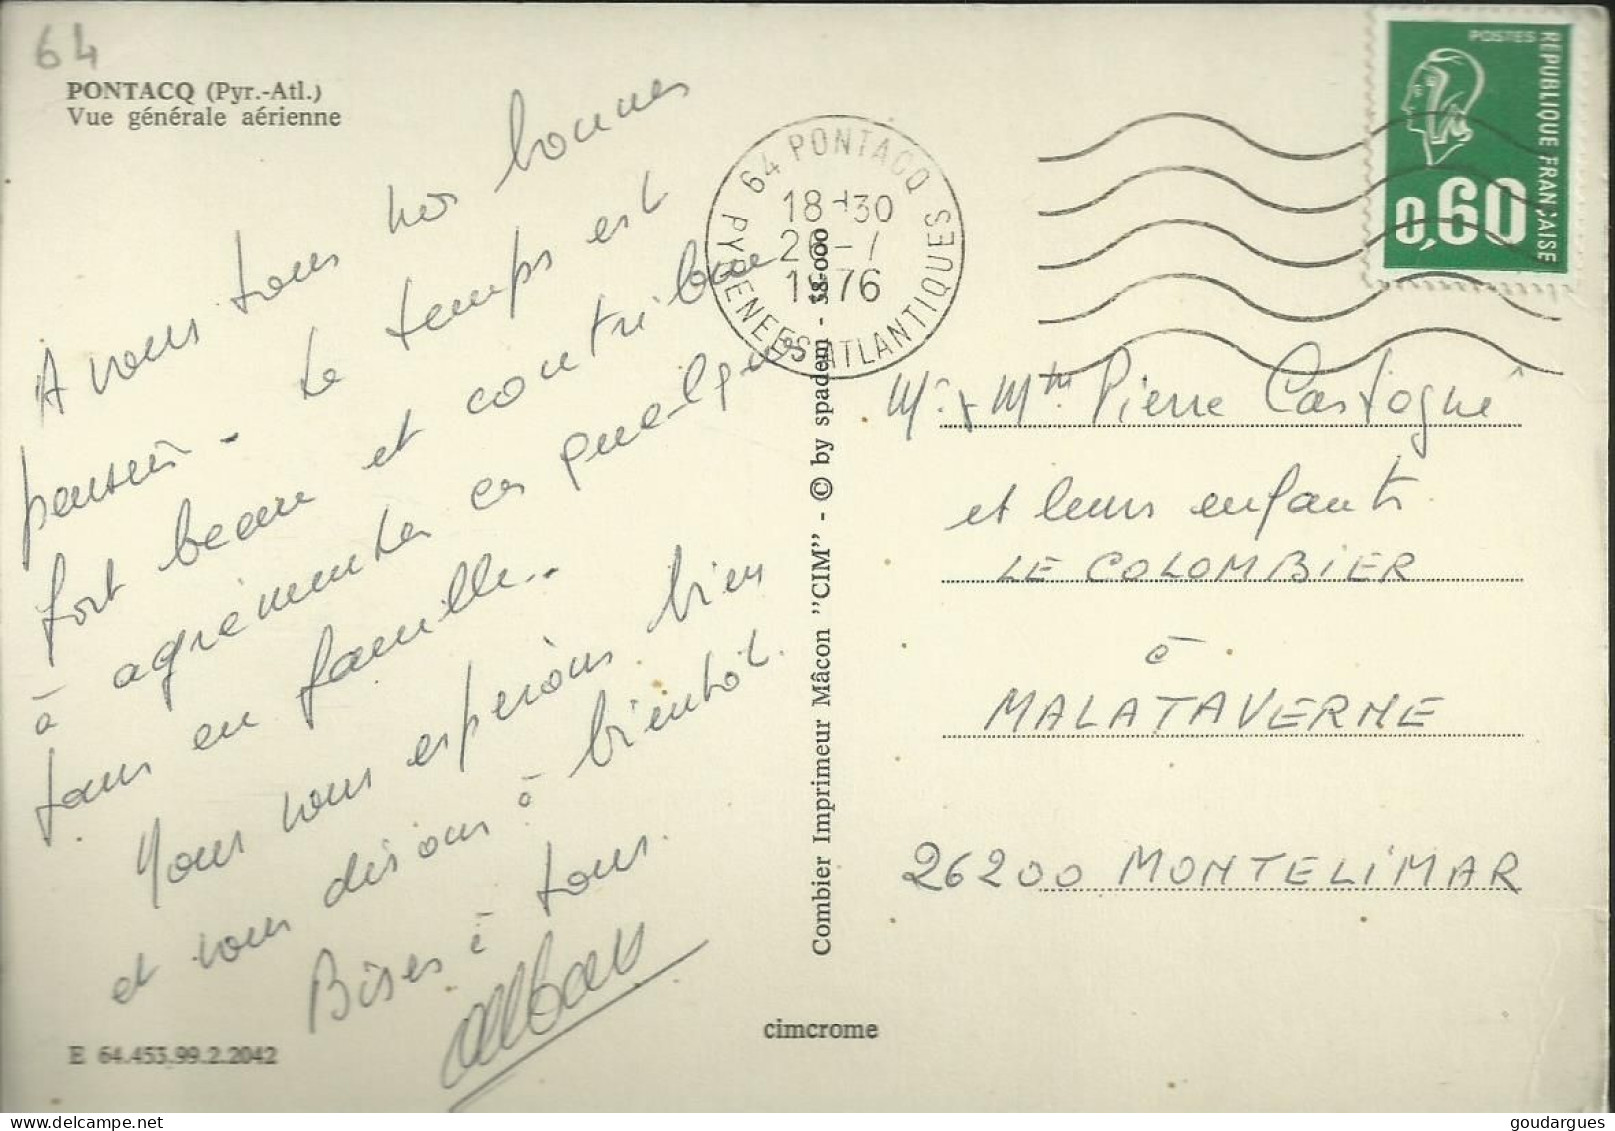 64
PONTACQ (Pyr.-Atl.)
Vue générale aérienne
A vous tous nos bonnes
pensées - Le temps est
fort beau et contribue
à agrémenter ces quelques
jours en famille..
Nous vous espérons bien
et vous disons à bientôt.
Bises à tous.
E 64.453.99.2.2042
cimcrome
Combier Imprimeur Mâcon "CIM" - © by spadem - 38-000
64 PONTACQ
18H30
1976
PYRENEES ATLANTIQUES
POSTES
REPUBLIQUE FRANÇAISE
0,60
Mr & Mme Pierre Castogné
et leurs enfants
LE COLOMBIER
à
MALATAVERNE
26200 MONTELIMAR
goudargues